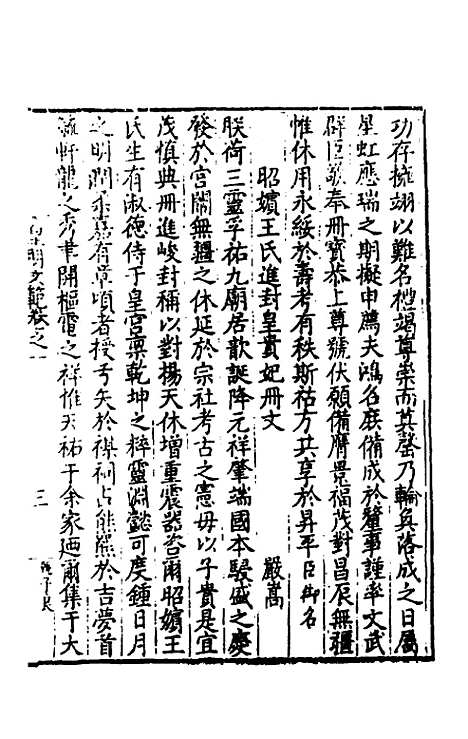 功存擁翊以難名禮竭尊崇而莫罄乃輪奐落成之日屬
星虹應瑞之期擬申薦夫鴻名庶備成於釐事謹率文武
群臣敬奉冊寶恭上尊號伏願備膺景福茂對昌辰無疆
惟休用永綏於壽考有秩斯祜方共享於昇平臣御名
昭嬪王氏進封皇貴妃冊文 嚴嵩
朕荷三靈孚祐九廟居歆誕降元祥肇端國本駿盛之慶
發於宮闈無疆之休延於宗社考古之憲母以子貴是宜
茂慎典冊進峻封稱以對揚天休增重震器咨爾昭嬪王
氏生有淑德侍于皇宮稟乾坤之粹靈淵懿可度鍾日月
之明潤柔嘉有章頃者授弓矢於禖祠占熊羆於吉夢首
軒龍之秀聿開樞電之祥惟天祐于余家廼爾集于大
皇明文範卷之一 三